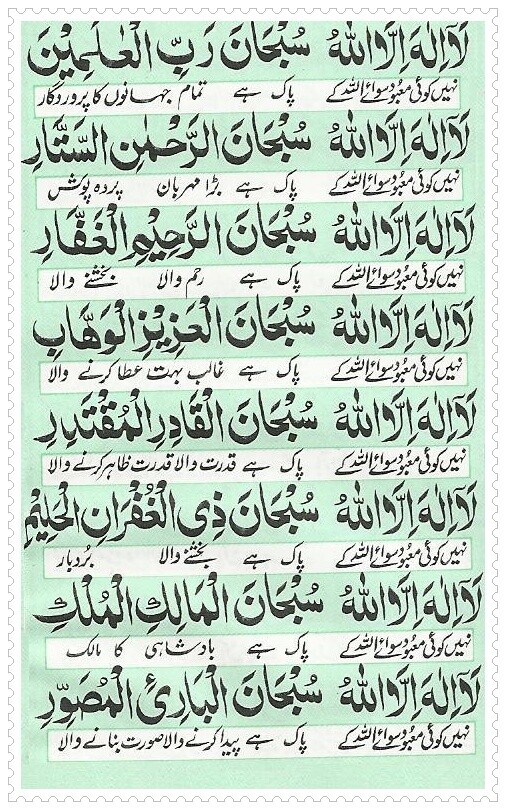 لَآ اِلٰهَ اِلَّا اللهُ سُبْحَانَ رَبِّ الْعٰلَمِيْنَ
نہیں کوئی معبود سوائے اللہ کے پاک ہے تمام جہانوں کا پروردگار
لَآ اِلٰهَ اِلَّا اللهُ سُبْحَانَ الرَّحْمٰنِ السَّتَّارِ
نہیں کوئی معبود سوائے اللہ کے پاک ہے بڑا مہربان پردہ پوش
لَآ اِلٰهَ اِلَّا اللهُ سُبْحَانَ الرَّحِيْمِ الْغَفَّارِ
نہیں کوئی معبود سوائے اللہ کے پاک ہے رحم والا بخشنے والا
لَآ اِلٰهَ اِلَّا اللهُ سُبْحَانَ الْعَزِيْزِ الْوَهَّابِ
نہیں کوئی معبود سوائے اللہ کے پاک ہے غالب بہت عطا کرنے والا
لَآ اِلٰهَ اِلَّا اللهُ سُبْحَانَ الْقَادِرِ الْمُقْتَدِرِ
نہیں کوئی معبود سوائے اللہ کے پاک ہے قدرت والا قدرت ظاہر کرنے والا
لَآ اِلٰهَ اِلَّا اللهُ سُبْحَانَ ذِي الْغُفْرَانِ الْحَلِيْمِ
نہیں کوئی معبود سوائے اللہ کے پاک ہے بخشنے والا بُردبار
لَآ اِلٰهَ اِلَّا اللهُ سُبْحَانَ الْمَالِكِ الْمُلْكِ
نہیں کوئی معبود سوائے اللہ کے پاک ہے بادشاہی کا مالک
لَآ اِلٰهَ اِلَّا اللهُ سُبْحَانَ الْبَارِئِ الْمُصَوِّرِ
نہیں کوئی معبود سوائے اللہ کے پاک ہے پیدا کرنے والا صورت بنانے والا